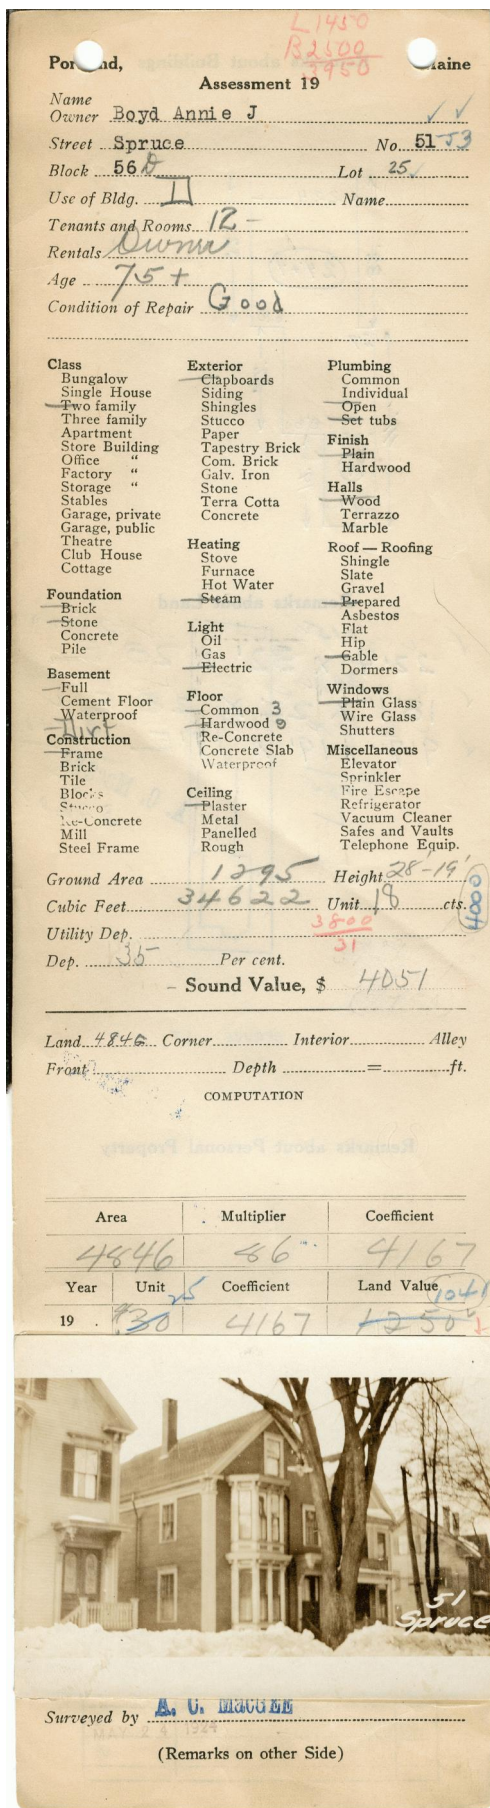 L 1450
B 2500
3950
Portland, Maine
Assessment 19
Name
Owner Boyd Annie J
Street Spruce No. 51-53
Block 56 D Lot 25
Use of Bldg. II Name
Tenants and Rooms 12 -
Rentals Owner
Age 75 +
Condition of Repair Good
Class
Bungalow
Single House
Two family
Three family
Apartment
Store Building
Office "
Factory "
Storage "
Stables
Garage, private
Garage, public
Theatre
Club House
Cottage
Foundation
Brick
Stone
Concrete
Pile
Basement
Full
Cement Floor
Waterproof
Dirt
Construction
Frame
Brick
Tile
Blocks
Stucco
Re-Concrete
Mill
Steel Frame
Exterior
Clapboards
Siding
Shingles
Stucco
Paper
Tapestry Brick
Com. Brick
Galv. Iron
Stone
Terra Cotta
Concrete
Heating
Stove
Furnace
Hot Water
Steam
Light
Oil
Gas
Electric
Floor
Common 3
Hardwood 9
Re-Concrete
Concrete Slab
Waterproof
Ceiling
Plaster
Metal
Panelled
Rough
Plumbing
Common
Individual
Open
Set tubs
Finish
Plain
Hardwood
Halls
Wood
Terrazzo
Marble
Roof — Roofing
Shingle
Slate
Gravel
Prepared
Asbestos
Flat
Hip
Gable
Dormers
Windows
Plain Glass
Wire Glass
Shutters
Miscellaneous
Elevator
Sprinkler
Fire Escape
Refrigerator
Vacuum Cleaner
Safes and Vaults
Telephone Equip.
Ground Area 1295 Height 28'-19'
Cubic Feet 34622 Unit 18 cts. 4000
Utility Dep. 3800
31
Dep. 35 Per cent.
- Sound Value, $ 4051
Land 4846 Corner Interior Alley
Front Depth = ft.
COMPUTATION
Area Multiplier Coefficient
4846 86 4167
Year Unit 25 Coefficient Land Value 1041
19 . $30 4167 1250
51
Spruce
Surveyed by A. C. MacGEE
(Remarks on other Side)